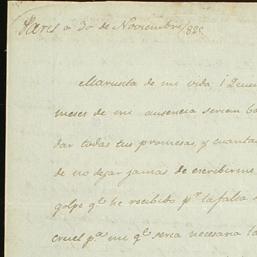 Paris a 30 de Noviembre/82
Marusita de mi vida ¡
meses de mi ausencia serian
dar todas tus promesas, y cuanta
de no dejar jamas de escribirme
golpe qᵉ he recibido pʳ la falta
cruel pᵃ mi qᵉ seria necesaria la